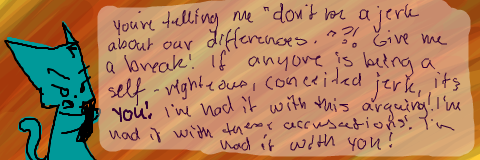 you're telling me "don't be a jerk
about our differences."?! Give me
a break! If anyone is being a
self-righteous, conceited jerk, its
you! I'm had it with this arguing! I'm
had it with these accusations! I'm
had it with you!